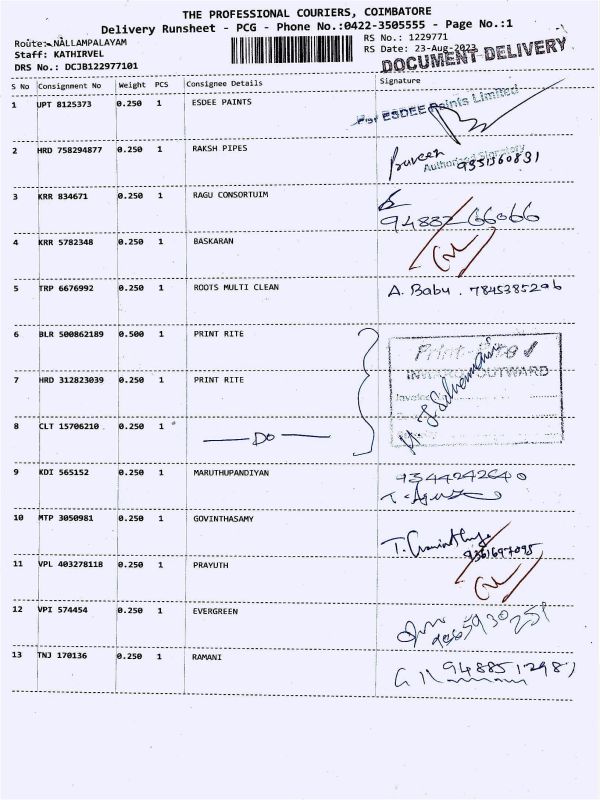 THE PROFESSIONAL COURIERS, COIMBATORE
Delivery Runsheet - PCG - Phone No.:0422-3505555 - Page No.:1
Route: NALLAMPALAYAM
Staff: KATHIRVEL
DRS No.: DCJB122977101
RS No.: 1229771
RS Date: 23-Aug-2023
DOCUMENT DELIVERY
S No Consignment No Weight PCS Consignee Details Signature
1 UPT 8125373 0.250 1 ESDEE PAINTS
For ESDEE Paints Limited
Authorised Signatory
2 HRD 758294877 0.250 1 RAKSH PIPES
Praveen 9551360831
3 KRR 834671 0.250 1 RAGU CONSORTUIM
94882 66066
4 KRR 5782348 0.250 1 BASKARAN
5 TRP 6676992 0.250 1 ROOTS MULTI CLEAN A. Babu . 7845385296
6 BLR 500862189 0.500 1 PRINT RITE
Print Rite
7 HRD 312823039 0.250 1 PRINT RITE
INWARD/OUTWARD
8 CLT 15706210 0.250 1 Do
9 KDI 565152 0.250 1 MARUTHUPANDIYAN 9344242640
10 MTP 3050981 0.250 1 GOVINTHASAMY
9361697095
11 VPL 403278118 0.250 1 PRAYUTH
12 VPI 574454 0.250 1 EVERGREEN
13 TNJ 170136 0.250 1 RAMANI